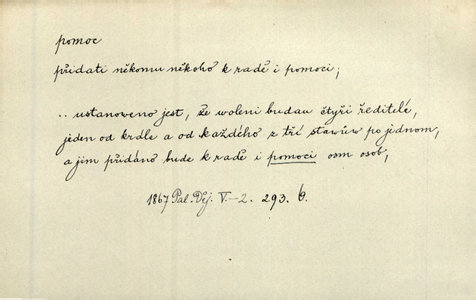 pomoc
přidati někomu někoho k radě i pomoci;
.. ustanoweno jest, že woleni budau čtyři ředitelé,
jeden od krále a od každého z tří stawůw po jednom,
a jim přidáno bude k radě i pomoci osm osob,
1867 Pal. Děj. V-2. 293. b.